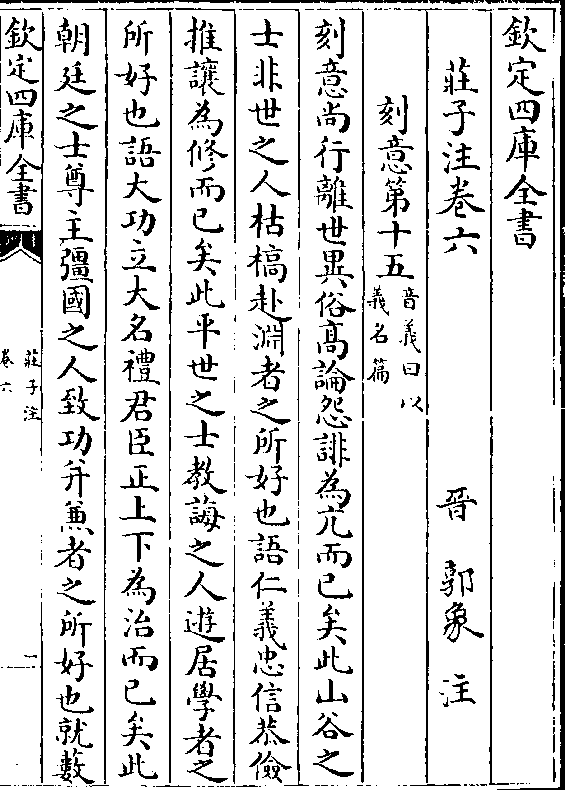 欽定四庫全書
莊子注卷六
晉 郭象 注
刻意第十五音義曰以
義名篇
刻意尚行離世異俗髙論怨誹為亢而已矣此山谷之
士非世之人枯槁赴淵者之所好也語仁義忠信恭儉
推讓為修而已矣此平世之士教誨之人遊居學者之
所好也語大功立大名禮君臣正上下為治而已矣此
朝廷之士尊主彊國之人致功并兼者之所好也就藪
欽定四庫全書
莊子注
卷六
一